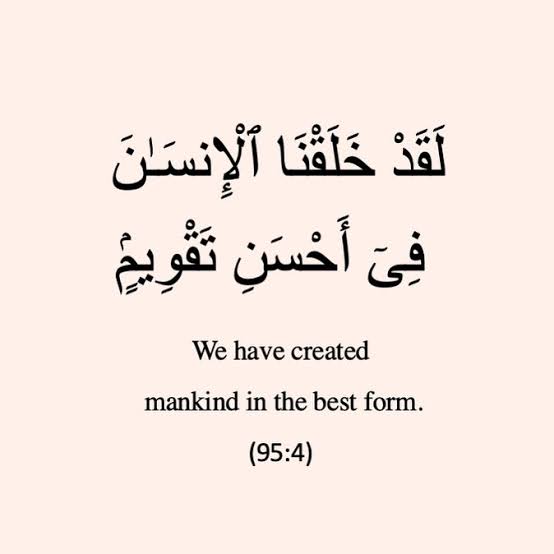 لَقَدْ خَلَقْنَا ٱلْإِنسَـٰنَ
فِىٓ أَحْسَنِ تَقْوِيمٍۢ
We have created
mankind in the best form.
(95:4)